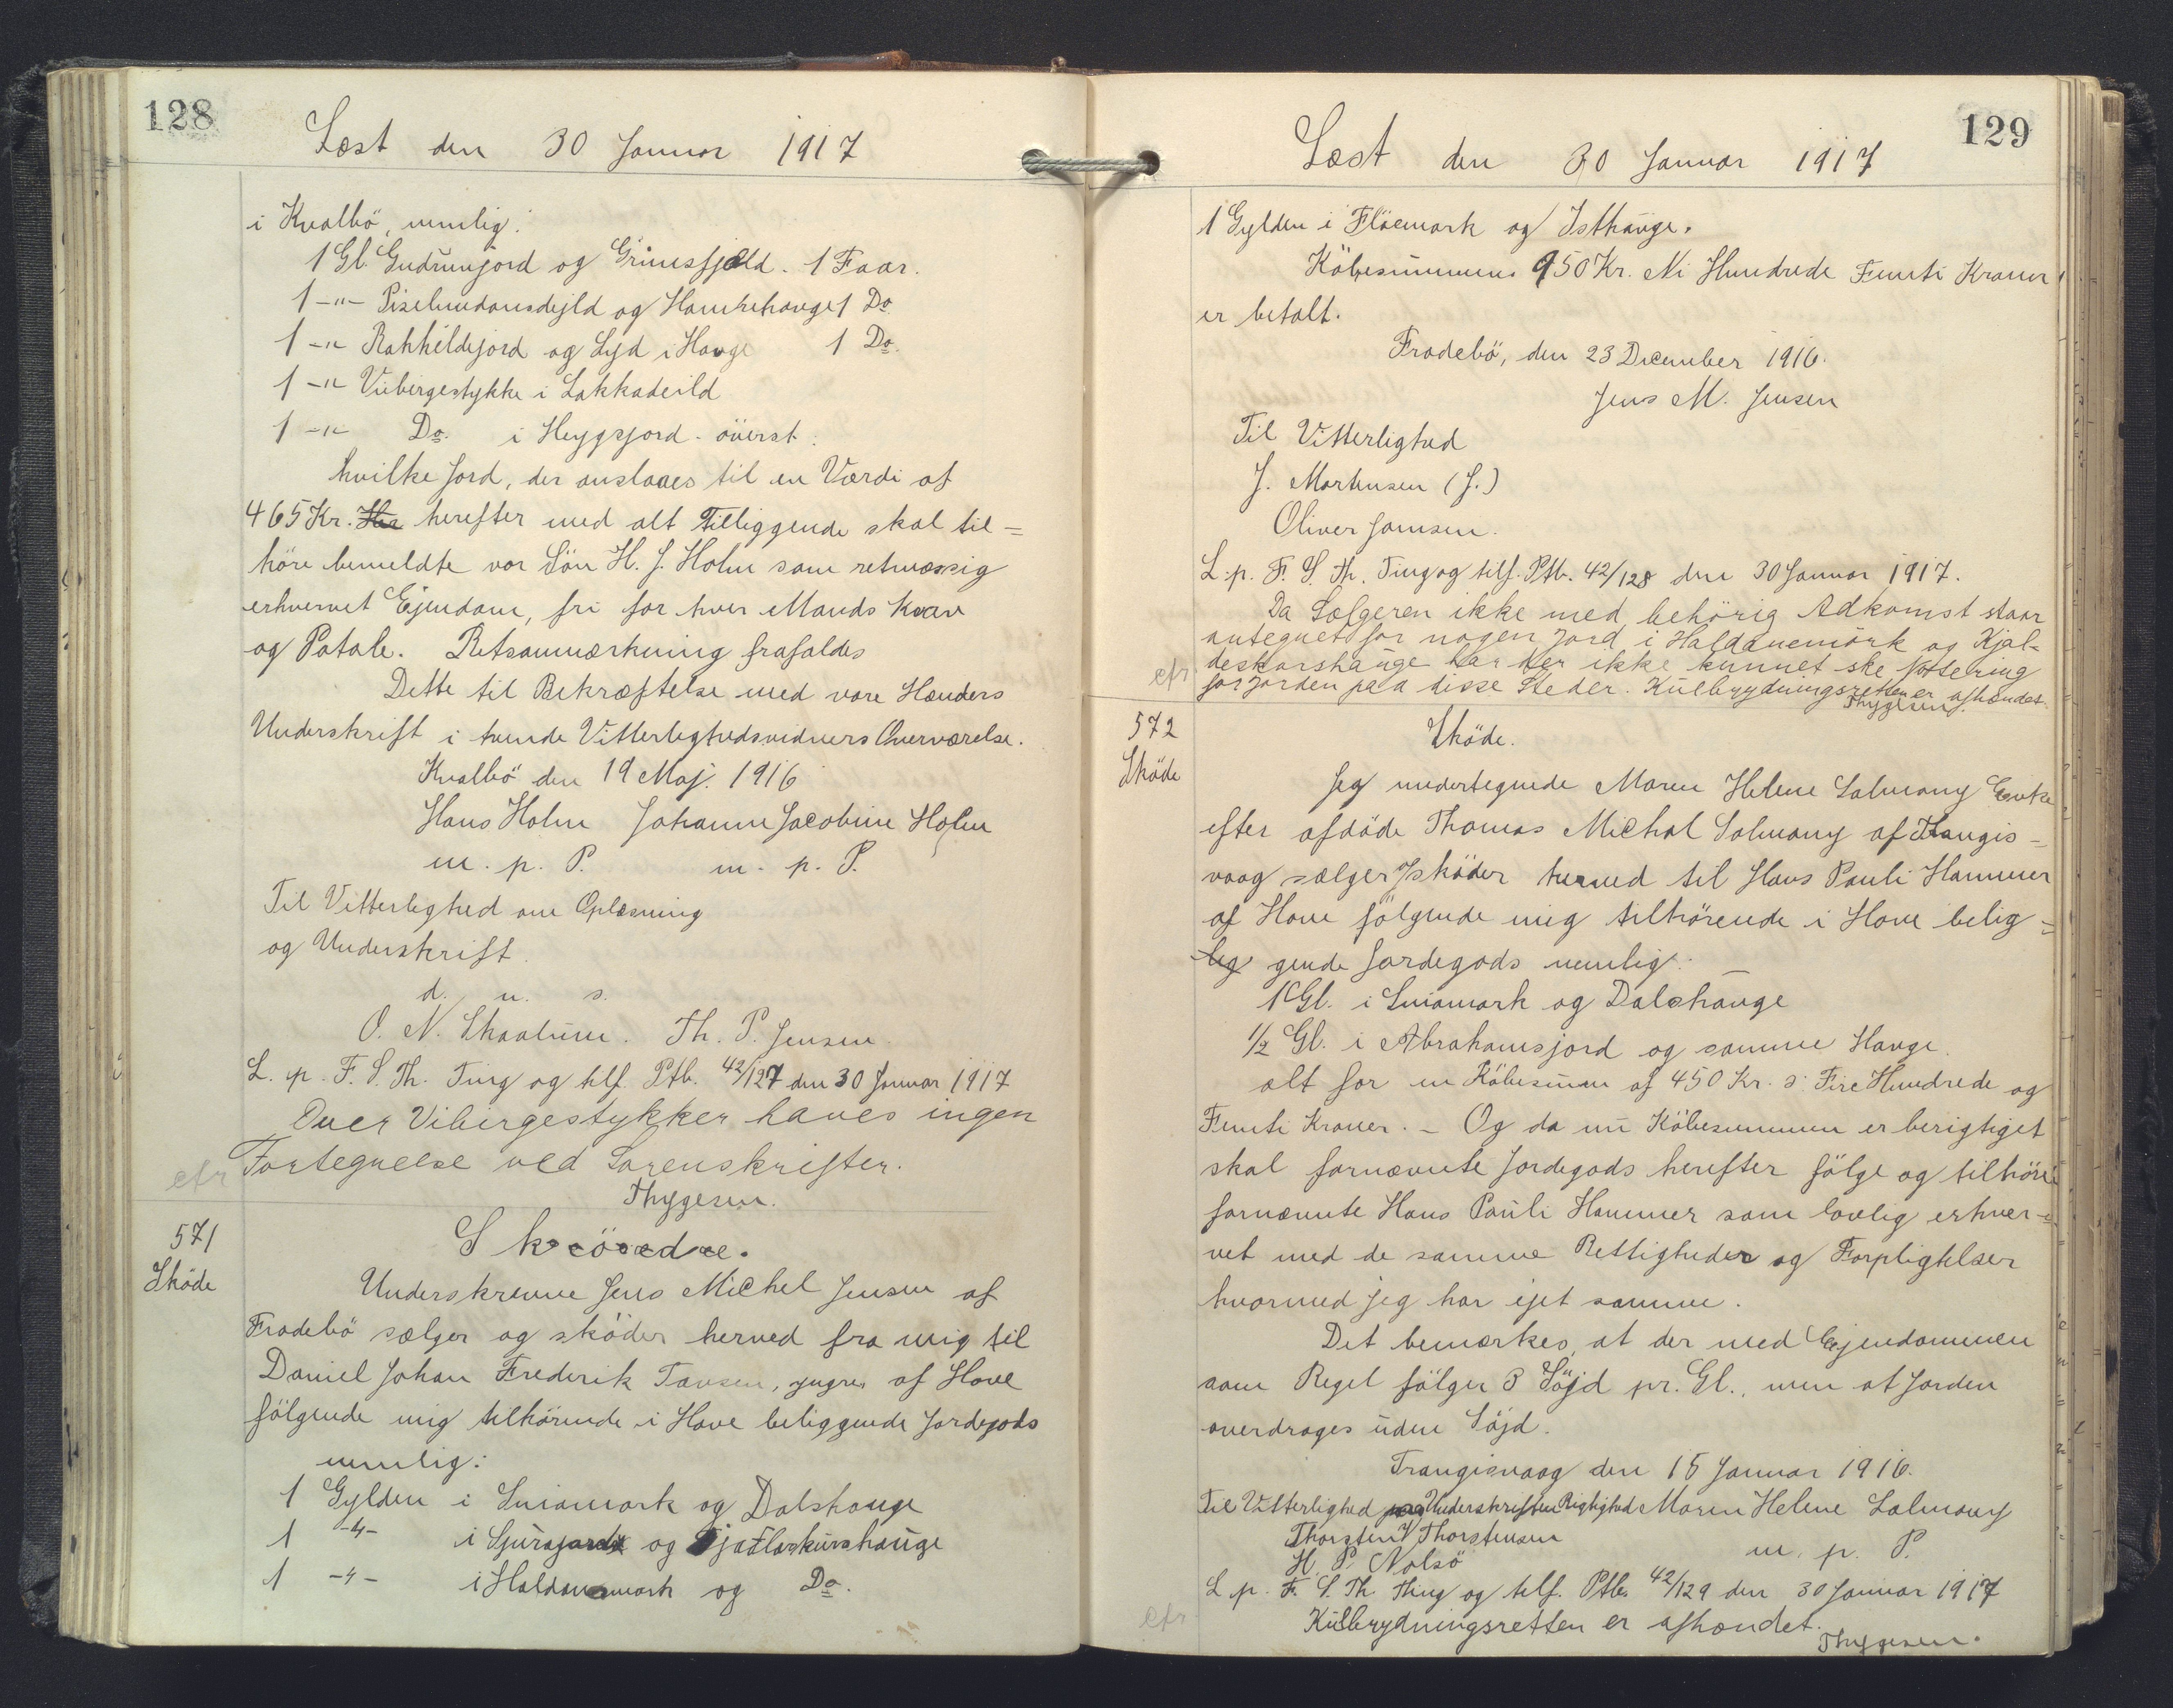 128
Læst den 30 Januar 1917
i Kvalbö, nemlig:
1 Gl. Gudrunjord og Grimsfjæld. 1 Faar.
1 -"- Piselmudansdejld og Hamrehauge 1 Do
1 -"- Rakkéldejord og Lyd i Hauge 1 Do.
1 -"- Viibirgestykke i Lakkadeild
1 -"- Do. i Heygsjord - överst.
hvilke Jord, der anslaaes til en Værdi af
465 Kr. Her herefter med alt Tilliggende skal til=
höre bemeldte vor Sön H. J. Holm som retmæssig
erhvervet Ejendom, fri for hver Mands Krav
og Patale. Retsanmærkning frafaldes
Dette til Bekræftelse med vore Hænders
Underskrift i tvende Vitterlighedsvidners Overværelse.
Kvalbö den 19 Maj. 1916
Hans Holm Johanne Jacobine Holm
m. p. P. m. p. P.
Til Vitterlighed om Oplæsning
og Underskrift.
d. u. s.
O. N. Skaalum. Th. P. Jensen
L. p. F. S. Th. Ting og tilf. Ptb. 42/127 den 30 Januar 1917
Over Vibirgestykker haves ingen
Fortegnelse ved Sorenskrifter.
cfr
Thygesen.
571
Sköde
Sköde.
Underskrevne Jens Michel Jensen af
Frodebö sælger og sköder herved fra mig til
Daniel Johan Frederik Tausen, yngre, af Hove
fölgende mig tilhörende i Hove beliggende Jordegods
nemlig:
1 Gylden i Sniamark og Dalshauge
1 -"- i Sjurajord og Kjadlaskurshauge
1 -"- i Haldanamark og Do.
129
Læst den 30 Januar 1917
1 Gylden i Flöemark og Isthauge.
Köbesummens 950 Kr. Ni Hundrede Femti Kroner
er betalt.
Frodebö, den 23 December 1916.
Jens M. Jensen
Til Vitterlighed
J. Mortensen (J.)
Oliver Joensen.
L. p. F. S. Th. Ting og tilf. Ptb. 42/128 den 30 Januar 1917.
Da Sælgeren ikke med behörig Adkomst staar
antegnet for nogen Jord i Haldanemörk og Kjal-
deskorshauge har der ikke kunnet ske Notering
cfr
for Jorden paa disse Steder. Kulbrydningsretten er afhændet.
Thygesen.
572
Sköde
Sköde.
Jeg undertegnede Maren Helene Salmony Enke
efter afdöde Thomas Michal Salmony af Trangis-
vaag sælger & sköder herved til Hans Pauli Hammer
af Hove fölgende mig tilhörende i Hove belig=
lig gende Jordegods nemlig:
1 Gl. i Sniamark og Dalshauge
1/2 Gl. i Abrahamsjord og samme Hauge.
alt for en Köbesum af 450 Kr. s: Fire Hundrede og
Femti Kroner. - Og da nu Köbesummen er berigtiget
skal fornævnte Jordegods herefter fölge og tilhöre
fornævnte Hans Pauli Hammer som lovlig erhver-
vet med de samme Rettigheder og Forpligtelser
hvormed jeg har ejet samme.
Det bemærkes, at der med Ejendommen
som Regel fölger 3 Söjd pr. Gl., men at Jorden
overdrages uden Söjd.
Trangisvaag den 15 Januar 1916.
Til Vitterlighed Underskriften Rigtighed Maren Helene Salmony
Thorstein Thorsteinsen
m. p. P.
H. P. Nolsö
L. p. F. S. Th. Thing og tilf. Ptb. 42/129 den 30 Januar 1917
cfr
Kulbrydningsretten er afhændet.
Thygesen.